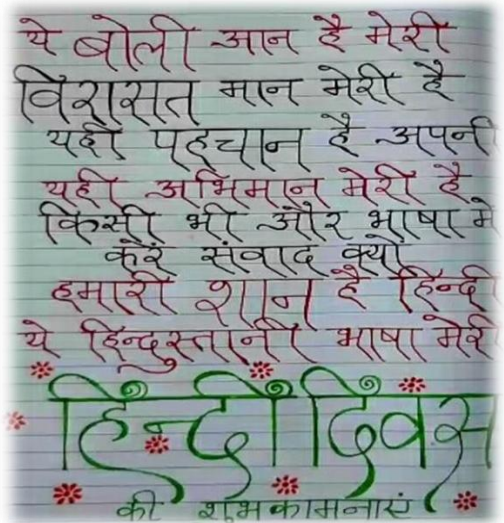 ये बोली आन है मेरी
विरासत मान मेरी है
यही पहचान है अपनी
यही अभिमान मेरी है
किसी भी और भाषा मे
करें संवाद क्यों
हमारी शान है हिन्दी
ये हिन्दुस्तानी भाषा मेरी
हिन्दी दिवस
की शुभकामनाएं